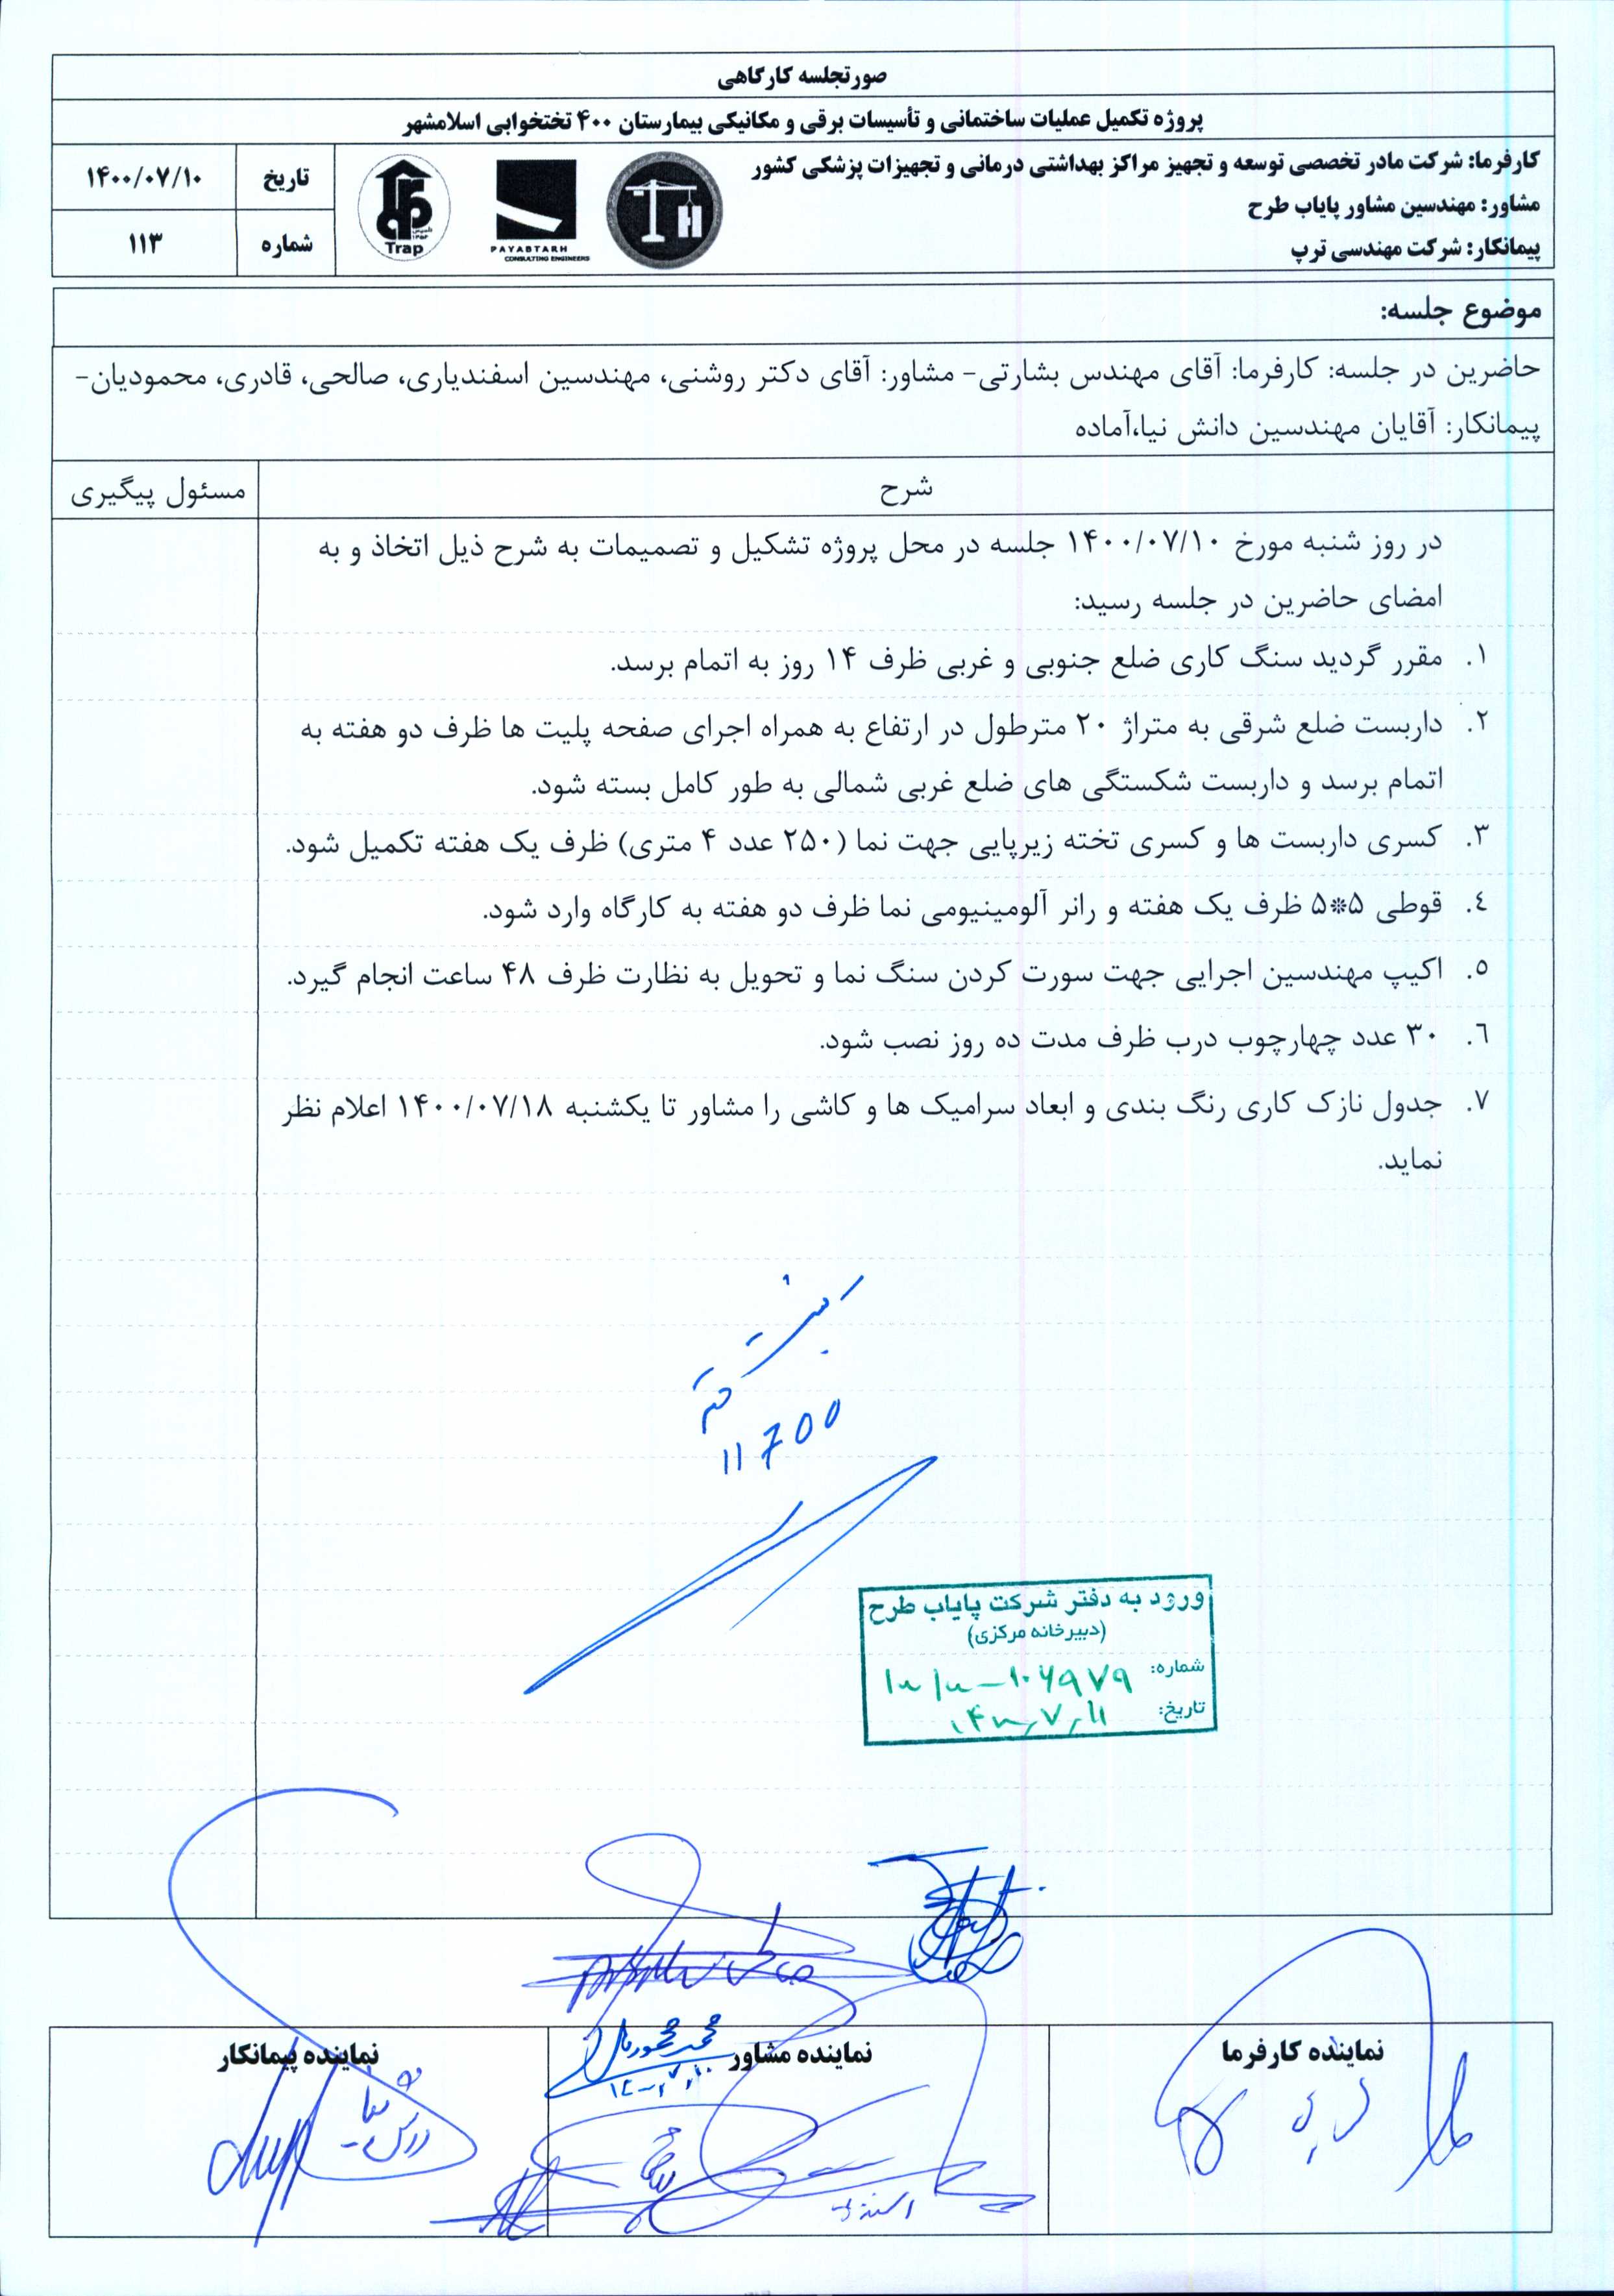 صورتجلسه کارگاهی
پروژه تکمیل عملیات ساختمانی و تأسیسات برقی و مکانیکی بیمارستان ۴۰۰ تختخوابی اسلامشهر
کارفرما: شرکت مادر تخصصی توسعه و تجهیز مراکز بهداشتی درمانی و تجهیزات پزشکی کشور
مشاور: مهندسین مشاور پایاب طرح
پیمانکار: شرکت مهندسی ترپ
PAYABTARH
CONSULTING ENGINEERS
Trap
تاریخ ۱۴۰۰/۰۷/۱۰
شماره ۱۱۳
موضوع جلسه:
حاضرین در جلسه: کارفرما: آقای مهندس بشارتی- مشاور: آقای دکتر روشنی، مهندسین اسفندیاری، صالحی، قادری، محمودیان-
پیمانکار: آقایان مهندسین دانش نیا،آماده
شرح مسئول پیگیری
در روز شنبه مورخ ۱۴۰۰/۰۷/۱۰ جلسه در محل پروژه تشکیل و تصمیمات به شرح ذیل اتخاذ و به
امضای حاضرین در جلسه رسید:
۱. مقرر گردید سنگ کاری ضلع جنوبی و غربی ظرف ۱۴ روز به اتمام برسد.
۲. داربست ضلع شرقی به متراژ ۲۰ مترطول در ارتفاع به همراه اجرای صفحه پلیت ها ظرف دو هفته به
اتمام برسد و داربست شکستگی های ضلع غربی شمالی به طور کامل بسته شود.
۳. کسری داربست ها و کسری تخته زیرپایی جهت نما (۲۵۰ عدد ۴ متری) ظرف یک هفته تکمیل شود.
٤. قوطی ۵*۵ ظرف یک هفته و رانر آلومینیومی نما ظرف دو هفته به کارگاه وارد شود.
٥. اکیپ مهندسین اجرایی جهت سورت کردن سنگ نما و تحویل به نظارت ظرف ۴۸ ساعت انجام گیرد.
٦. ۳۰ عدد چهارچوب درب ظرف مدت ده روز نصب شود.
۷. جدول نازک کاری رنگ بندی و ابعاد سرامیک ها و کاشی را مشاور تا یکشنبه ۱۴۰۰/۰۷/۱۸ اعلام نظر
نماید.
ورود به دفتر شرکت پایاب طرح
(دبیرخانه مرکزی)
شماره: ۱۰۶۹۷۹
تاریخ:
نماینده کارفرما نماینده مشاور نماینده پیمانکار